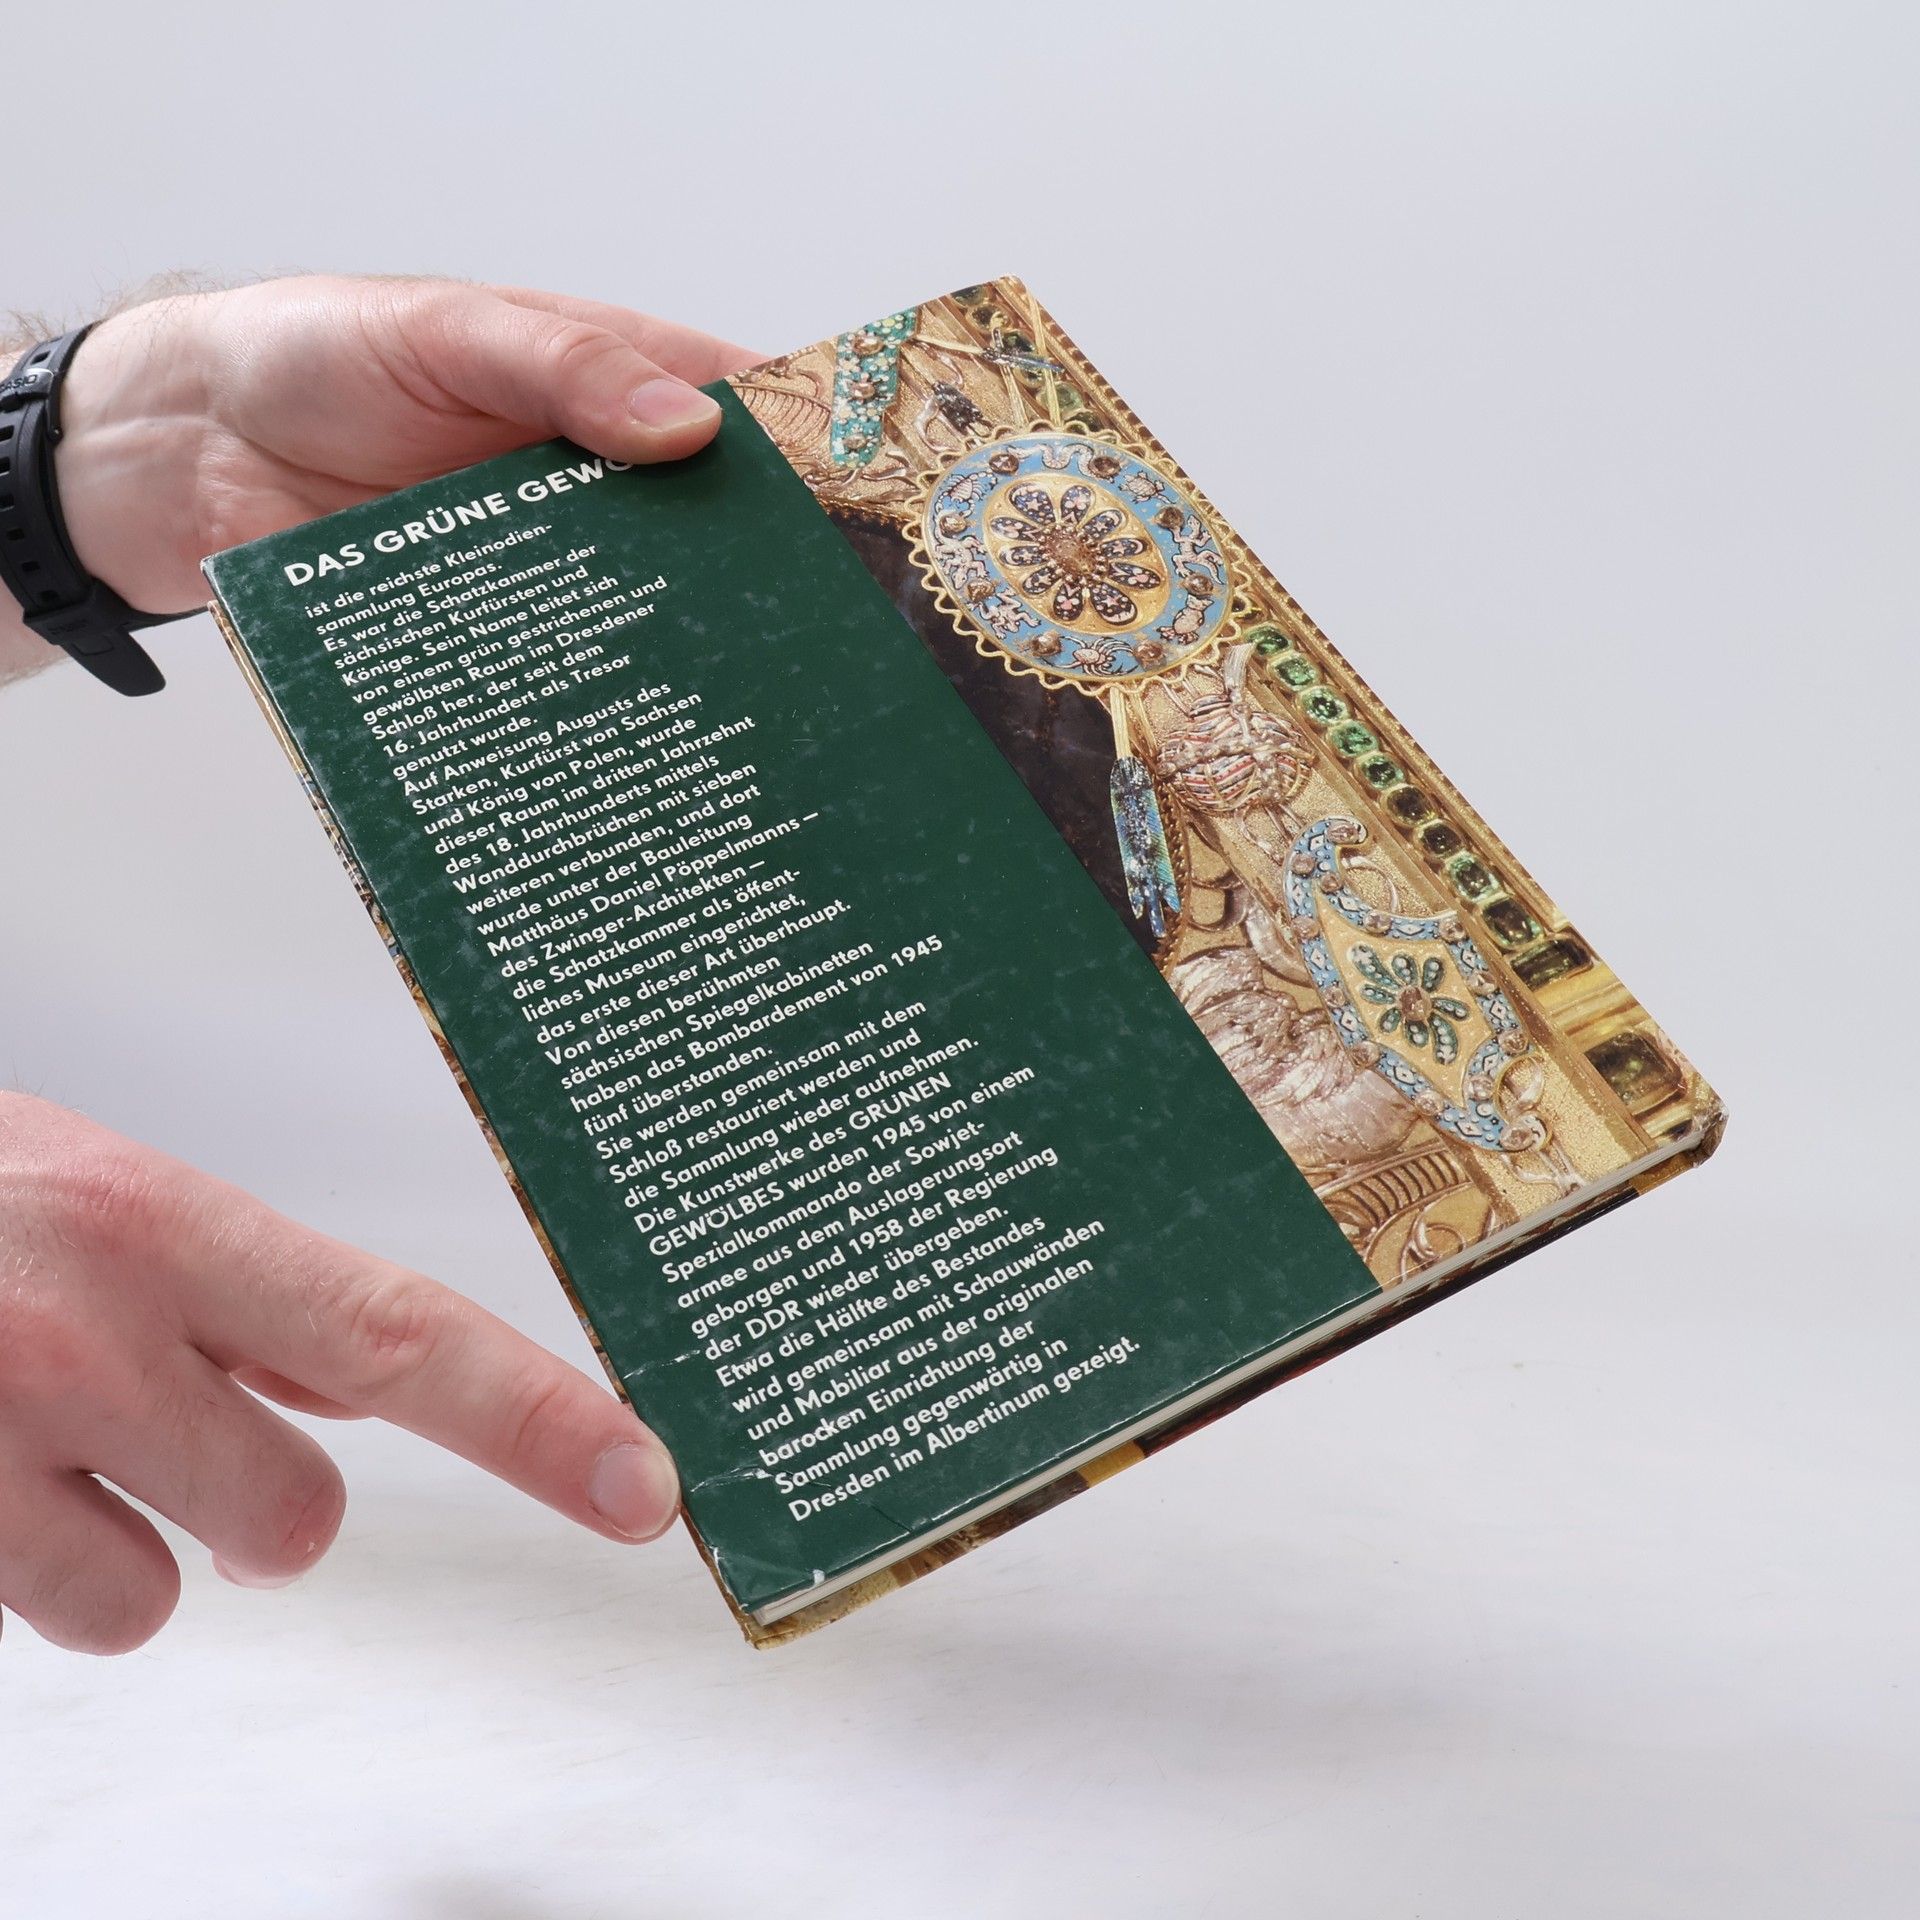 CASIO
DAS GRÜNE GEWÖ
ist die reichste Kleinodien-
sammlung Europas.
Es war die Schatzkammer der
sächsischen Kurfürsten und
Könige. Sein Name leitet sich
von einem grün gestrichenen und
gewölbten Raum im Dresdener
Schloß her, der seit dem
16. Jahrhundert als Tresor
genutzt wurde.
Auf Anweisung Augusts des
Starken, Kurfürst von Sachsen
und König von Polen, wurde
dieser Raum im dritten Jahrzehnt
des 18. Jahrhunderts mittels
Wanddurchbrüchen mit sieben
weiteren verbunden, und dort
wurde unter der Bauleitung
Matthäus Daniel Pöppelmanns –
des Zwinger-Architekten –
die Schatzkammer als öffent-
liches Museum eingerichtet,
das erste dieser Art überhaupt.
Von diesen berühmten
sächsischen Spiegelkabinetten
haben das Bombardement von 1945
fünf überstanden.
Sie werden gemeinsam mit dem
Schloß restauriert werden und
die Sammlung wieder aufnehmen.
Die Kunstwerke des GRÜNEN
GEWÖLBES wurden 1945 von einem
Spezialkommando der Sowjet-
armee aus dem Auslagerungsort
geborgen und 1958 der Regierung
der DDR wieder übergeben.
Etwa die Hälfte des Bestandes
wird gemeinsam mit Schauwänden
und Mobiliar aus der originalen
barocken Einrichtung der
Sammlung gegenwärtig in
Dresden im Albertinum gezeigt.